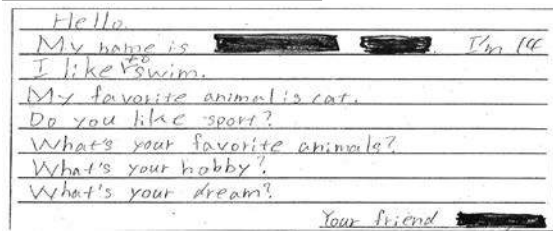 Hello.
My name is . I'm 14
I like to swim.
My favorite animal is cat.
Do you like sport?
What's your favorite animals?
What's your hobby?
What's your dream?
Your friend